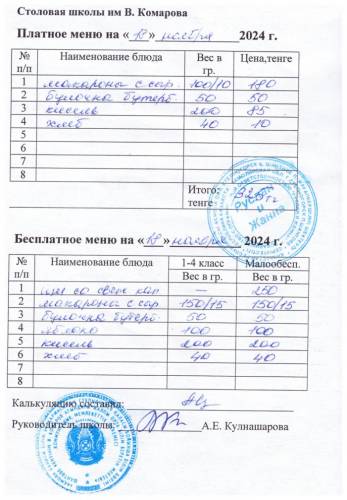 Столовая школы им В. Комарова
Платное меню на «18» ноября 2024 г.
№ п/п Наименование блюда Вес в гр. Цена,тенге
1 макароны с сыр. 100/10 180
2 булочка бутерб. 50 50
3 кисель 200 85
4 хлеб 40 10
5
6
7
8
Итого: 325 тг
тенге
Руслан
и
Жанна
Бесплатное меню на «18» ноября 2024 г.
№ п/п Наименование блюда 1-4 класс Малообесп.
Вес в гр. Вес в гр.
1 щи со свеж кап — 250
2 макароны с сыр 150/15 150/15
3 булочка бутерб. 50 50
4 яблоко 100 100
5 кисель 200 200
6 хлеб 40 40
7
8
Калькуляцию составил:
Руководитель школы: А.Е. Кулнашарова